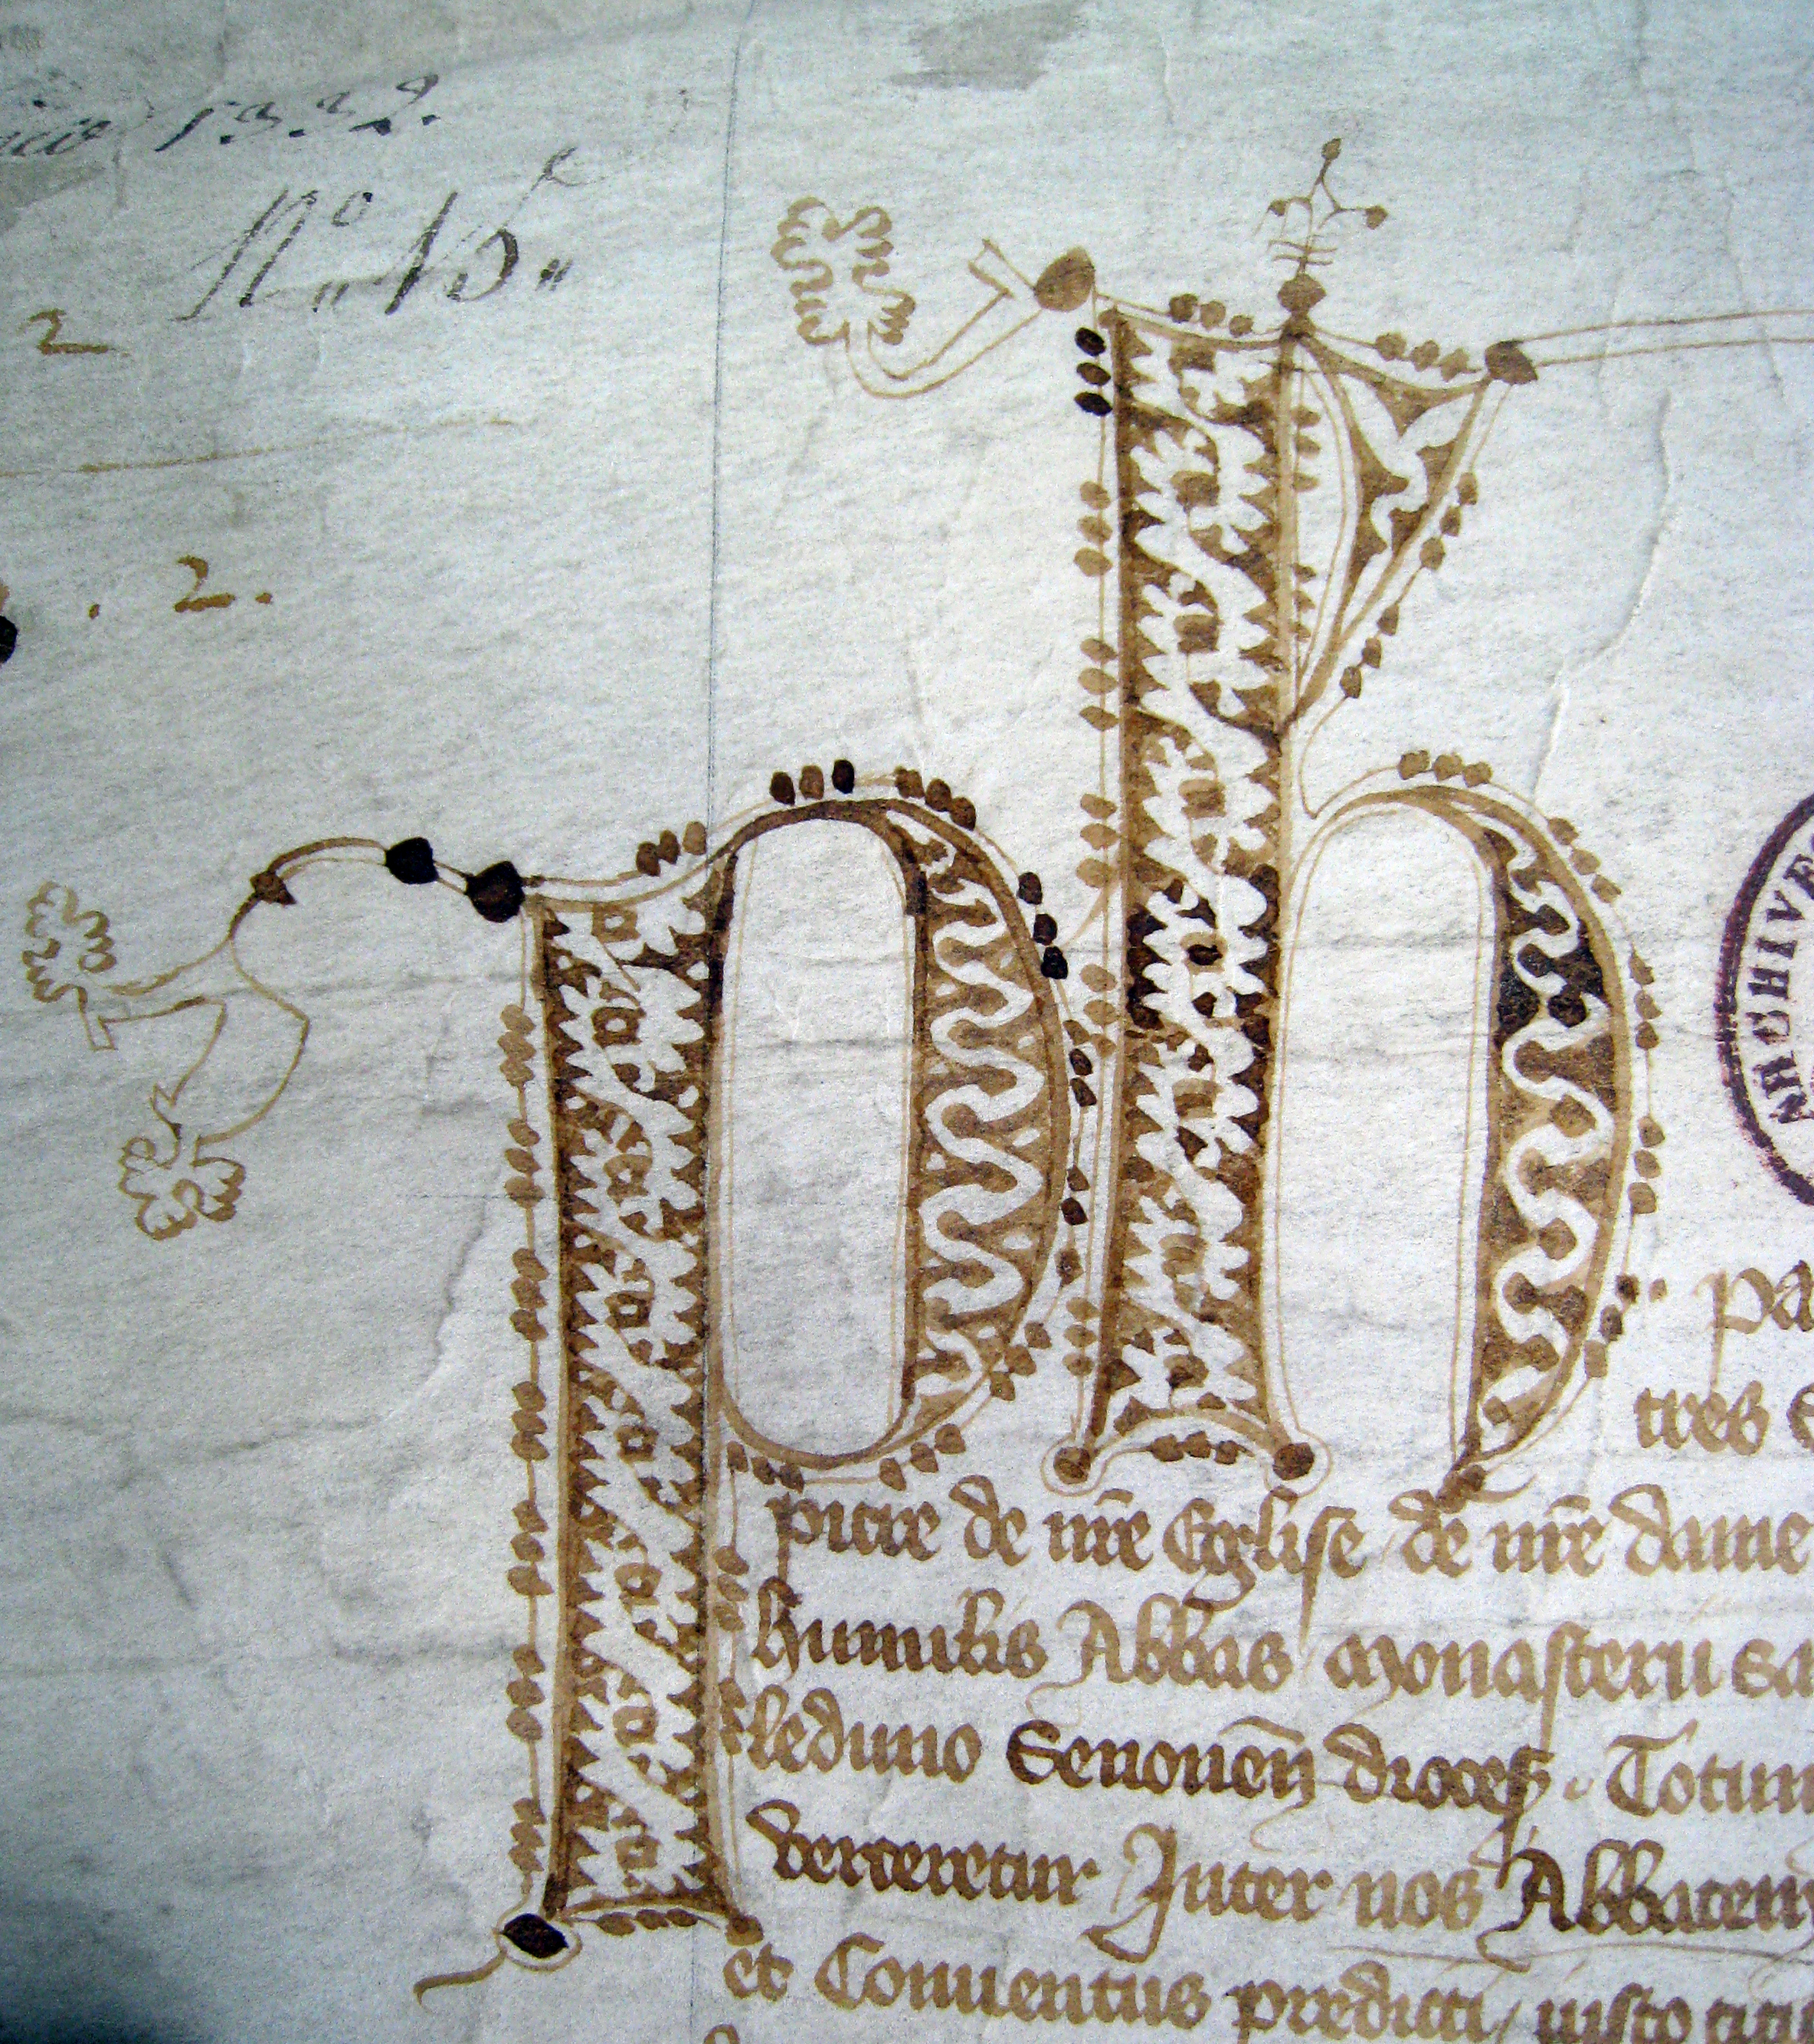 1332.
N.º 15."
2
. 2.
Ph
ARCHIVE
pa
tres
pitre de nr̄e Eglise de nr̄e dame
humilis Abbas monasterii sa
leduno Senonen̄ dioces. Totum
verteretur Inter nos Abbatem
et Conuentus predicti iusto titu